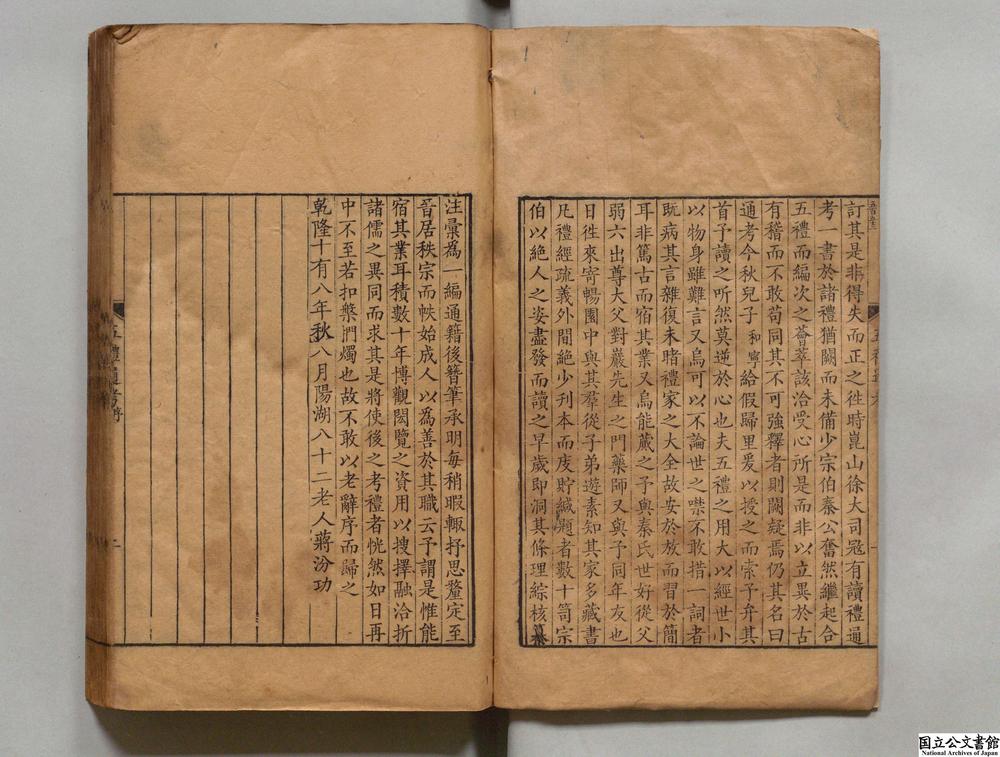 訂其是非得失而正之徃時崑山徐大司冦有讀禮通
考一書於諸禮猶闕而未備少宗伯秦公奮然繼起合
五禮而編次之薈萃該洽受心所是而非以立異於古
有稽而不敢苟同其不可強釋者則闕疑焉仍其名曰
通考今秋兒子和寧給假歸里爰以授之而索予弁其
首予讀之所然莫逆於心也夫五禮之用大以經世小
以物身雖難言又烏可以不論世之噤不敢措一詞者
既病其言雜復未睹禮家之大全故安於放而習於簡
耳非篤古而宿其業又烏能蕆之予與秦氏世好從父
弱六出尊大父對巖先生之門藥師又與予同年友也
日徃來寄暢園中與其羣從子弟遊素知其家多藏書
凡禮經疏義外間絶少刋本而庋貯緘題者數十笥宗
伯以絶人之姿盡發而讀之早歲即洞其條理綜核纂
注彙為一編通籍後簪筆承明每稍暇輙抒思釐定至
晉居秩宗而帙始成人以為善於其職云予謂是惟能
宿其業耳積數十年博觀閎覽之資用以搜擇融洽折
諸儒之異同而求其是將使後之考禮者恍然如日再
中不至若扣槃捫燭也故不敢以老辭序而歸之
乾隆十有八年秋八月陽湖八十二老人蔣汾功
五禮通考序
二
国立公文書館
National Archives of Japan